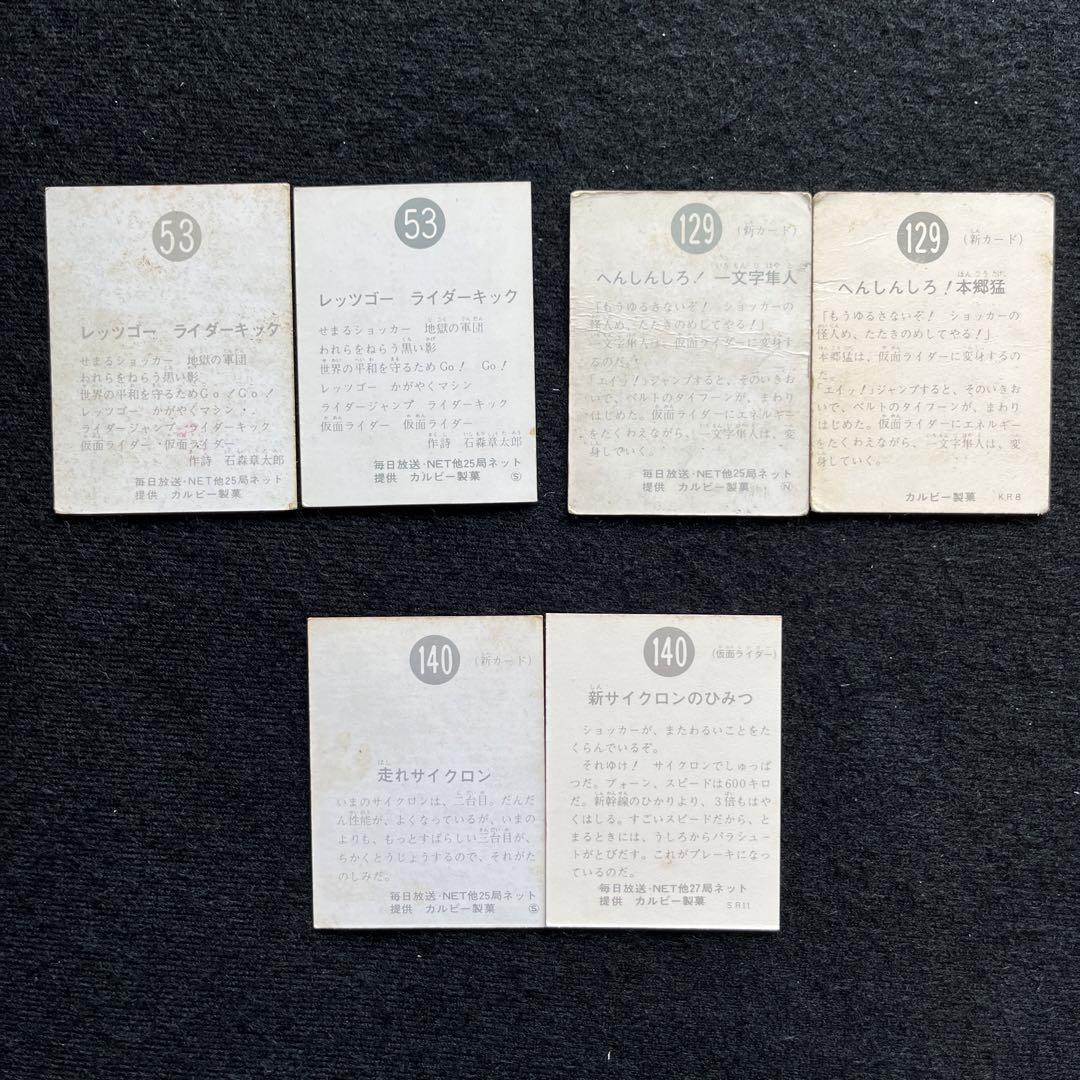 53
レッツゴー ライダーキック
せまるショッカー 地獄の軍団
われらをねらう黒い影
世界の平和を守るためGo！Go！
レッツゴー かがやくマシン
ライダージャンプ ライダーキック
仮面ライダー 仮面ライダー
作詩 石森章太郎
毎日放送・NET他25局ネット
提供 カルビー製菓
53
レッツゴー ライダーキック
せまるショッカー 地獄の軍団
われらをねらう黒い影
世界の平和を守るためGo！ Go！
レッツゴー かがやくマシン
ライダージャンプ ライダーキック
仮面ライダー 仮面ライダー
作詩 石森章太郎
毎日放送・NET他25局ネット
提供 カルビー製菓 Ⓢ
129 （新カード）
へんしんしろ！ 一文字隼人
「もうゆるさないぞ！ ショッカーの
怪人め、たたきのめしてやる！」
一文字隼人は、仮面ライダーに変身する
のだ。
「エイッ！」ジャンプすると、そのいきお
いで、ベルトのタイフーンが、まわり
はじめた。仮面ライダーにエネルギー
をたくわえながら、一文字隼人は、変
身していく。
毎日放送・NET他25局ネット
提供 カルビー製菓 Ⓝ
129 （新カード）
へんしんしろ！本郷猛
「もうゆるさないぞ！ ショッカーの
怪人め、たたきのめしてやる！」
本郷猛は、仮面ライダーに変身するの
だ。
「エイッ！」ジャンプすると、そのいきお
いで、ベルトのタイフーンが、まわり
はじめた。仮面ライダーにエネルギー
をたくわえながら、一文字隼人は、変
身していく。
カルビー製菓 KR8
140 （新カード）
走れサイクロン
いまのサイクロンは、二台目。だんだ
ん性能が、よくなっているが、いまの
よりも、もっとすばらしい三台目が、
ちかくとうじょうするので、それがた
のしみだ。
毎日放送・NET他25局ネット
提供 カルビー製菓 Ⓢ
140 （仮面ライダー）
新サイクロンのひみつ
ショッカーが、またわるいことをた
くらんでいるぞ。
それゆけ！ サイクロンでしゅっぱ
つだ。ブォーン、スピードは600キロ
だ。新幹線のひかりより、3倍もはや
くはしる。すごいスピードだから、と
まるときには、うしろからパラシュー
トがとびだす。これがブレーキになっ
ているのだ。
毎日放送・NET他27局ネット
提供 カルビー製菓 SR11